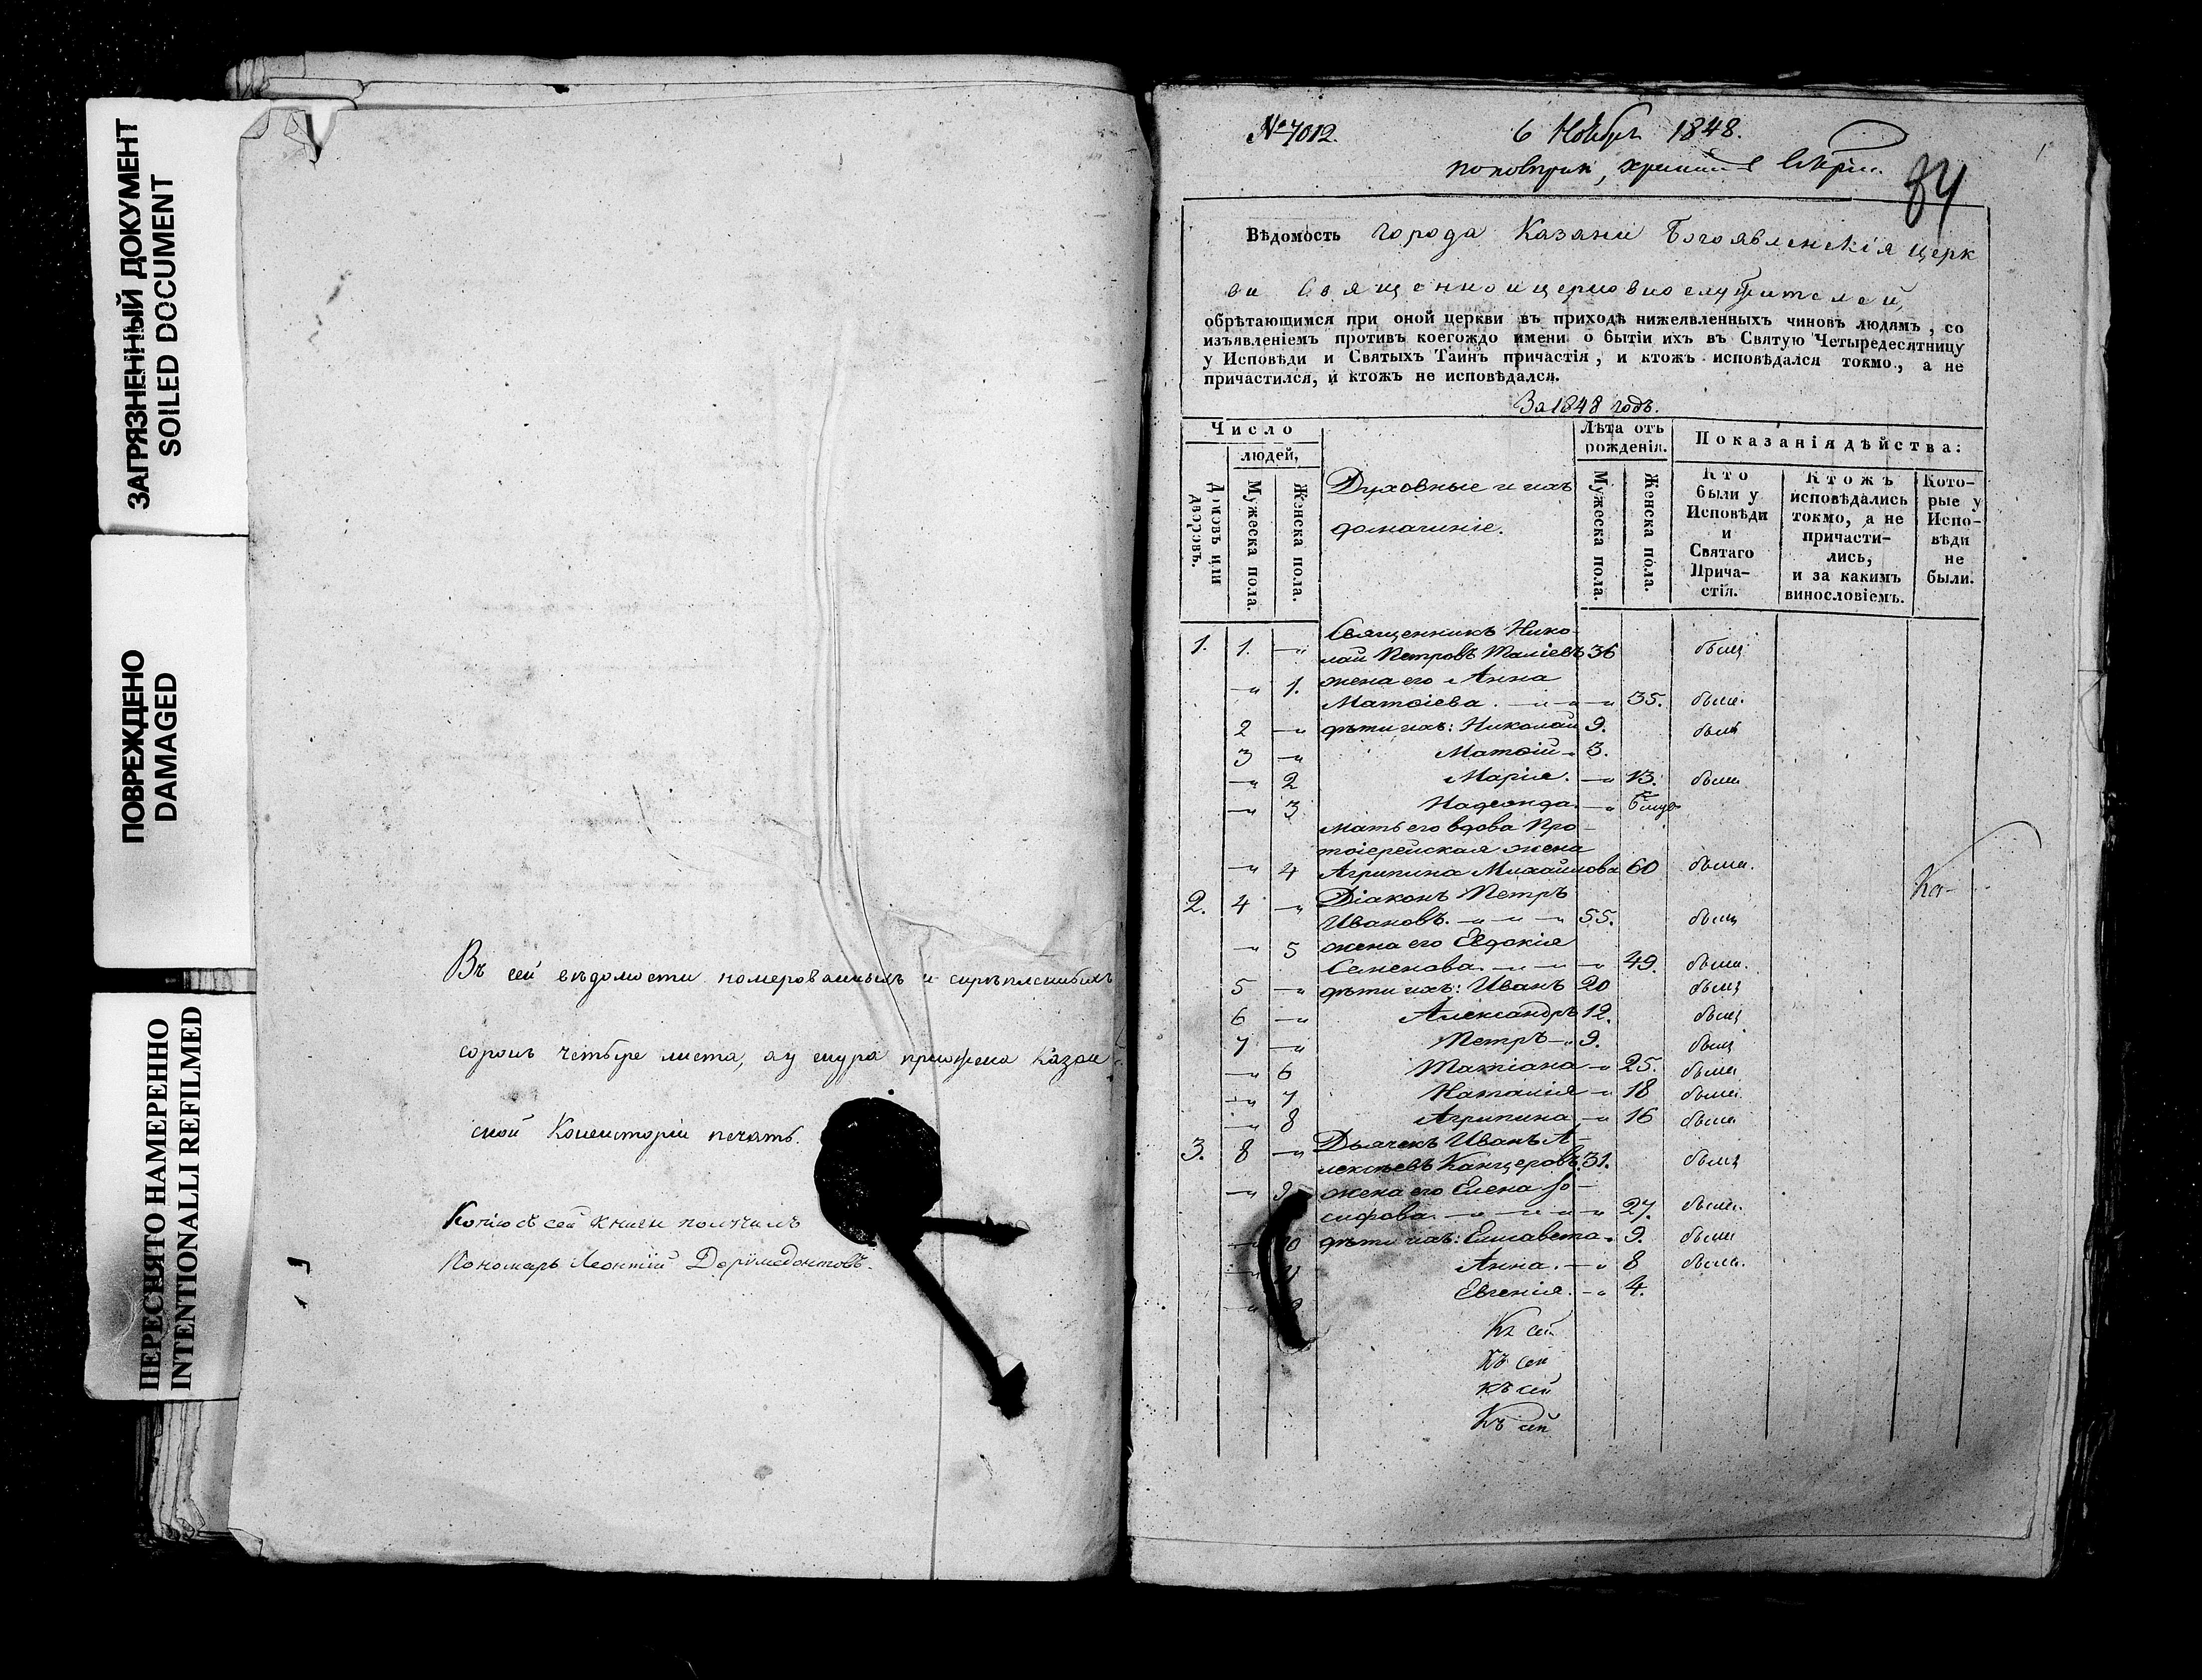 ЗАГРЯЗНЕННЫЙ ДОКУМЕНТ
SOILED DOCUMENT
ПОВРЕЖДЕНО
DAMAGED
ПЕРЕСНЯТО НАМЕРЕННО
INTENTIONALLI REFILMED
Въ сей вѣдомости номерованныхъ и скрѣпленныхъ
сорокъ четыре листа, а у шнура приложена Казан
ской Консисторіи печать.
Копію съ сей книги получилъ
Пономарь Леонтій Доримедонтовъ.
№ 7012. 6 Ноября 1848.
84
Вѣдомость города Казани Богоявленскія церк
ви Священноицерковнослужителей,
обрѣтающимся при оной церкви въ приходѣ нижеявленныхъ чиновъ людямъ, со
изъявленіемъ противъ коегождо имени о бытіи ихъ въ Святую Четыредесятницу
у Исповѣди и Святыхъ Таинъ причастія, и ктожъ исповѣдался токмо, а не
причастился, и ктожъ не исповѣдался.
За 1848 годъ.
Число
людей,
Домовъ или дворовъ.
Мужеска пола.
Женска пола.
Духовные и ихъ
домашніе.
Лѣта отъ
рожденія.
Мужеска пола.
Женска пола.
Показанія дѣйства:
Кто
были у
Исповѣди
и
Святаго
Прича-
стія.
Ктожъ
исповѣдались
токмо, а не
причасти-
лись,
и за какимъ
винословіемъ.
Кото-
рые у
Испо-
вѣди
не
были.
Священникъ Нико-
1. 1. лай Петровъ 36 былъ
жена его Анна
1. Матѳіева. 35. была.
2 дѣти ихъ: Николай 9. былъ
3 Матѳій 3.
2 Марія. 13. была
3 Надежда.
Мать его вдова Про-
тоіерейская жена
4 Агрипина Михайлова 60 была.
2. 4 Діаконъ Петръ
Ивановъ. 55. былъ
5 жена его Евдокія
Семенова. 49. была.
5 дѣти ихъ: Иванъ 20 былъ
6 Александръ 12. былъ
7 Петръ 9. былъ
6 Татіана 25. была
7 Наталія 18 была
8 Агрипина 16 была
3. 8 Дьячекъ Иванъ А-
лексѣевъ Канцеровъ. 31. былъ
9 жена его Елена Іо-
сифова. 27. была.
10 дѣти ихъ: Елисавета 9. была
Анна. 8 была.
Евгенія. 4.
Ка-
Къ сей
Къ сей
Къ сей
Къ сей